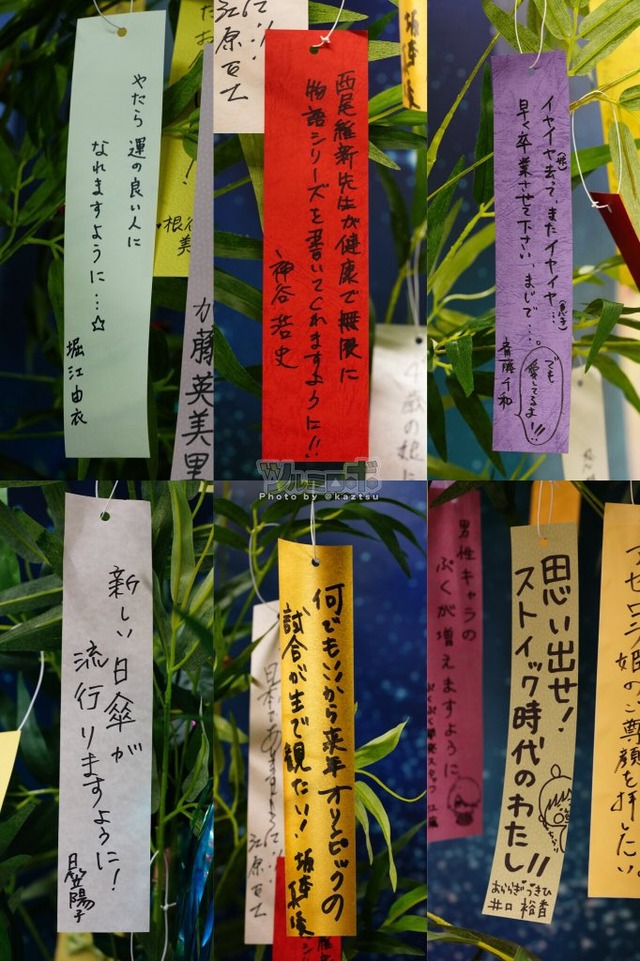 やたら 運の良い人に
なれますように…☆
堀江由衣
加藤英美里
江原正士
西尾維新先生が健康で無限に
物語シリーズを書いてくれますように!!
神谷浩史
イヤイヤ去って、またイヤイヤ…
早く卒業させて下さい、まじで…。
でも
愛してるよ!!
斎藤千和
ツルミロボ
Photo by @kaztsu
新しい日傘が
流行りますように!
日笠陽子
何でもいいから来年オリンピックの
試合が生で観たい!
坂本真綾
江原正士
男性キャラの
ふくが増えますように
思い出せ!
ストイック時代のわたし!!
おららぎつきひ
井口裕香
アセロラ姫のご尊顔を拝したい